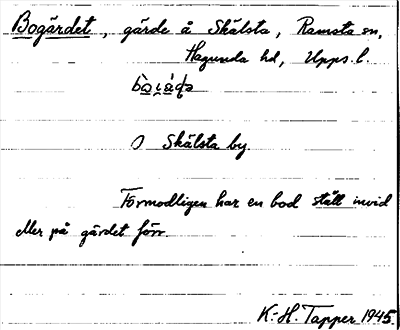 Bogärdet, gärde å Skälsta, Ramsta sn,
Hagunda hd, Upps. l.
O Skälsta by.
Förmodligen har en bod stått invid
eller på gärdet förr.
K.-H. Tapper 1945.